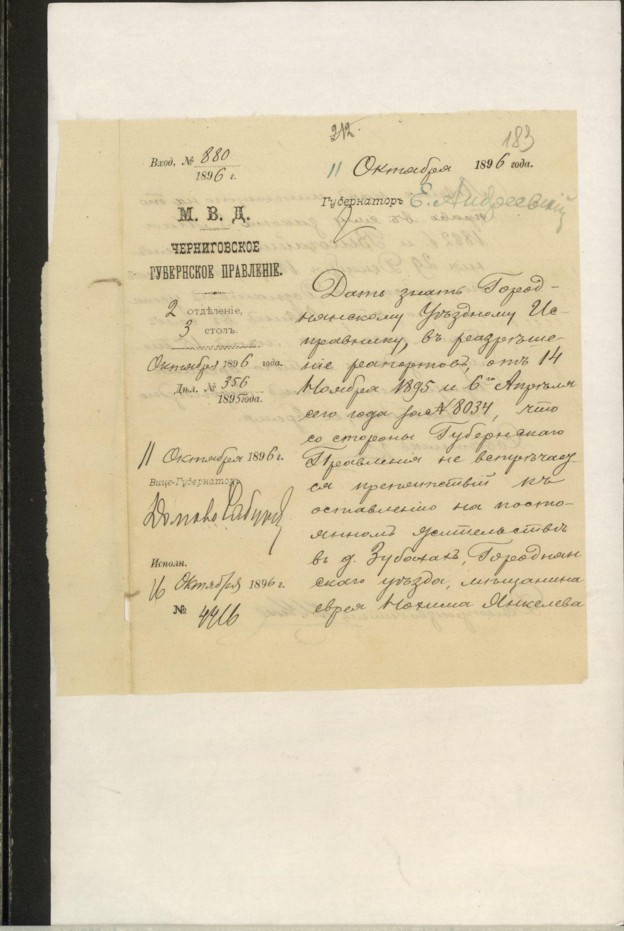 212.
183
Вход. № 880
1896 г.
11 Октября 1896 года.
Губернаторъ Е. Андреевскій
М. В. Д.
ЧЕРНИГОВСКОЕ
ГУБЕРНСКОЕ ПРАВЛЕНІЕ.
2 отдѣленіе,
3 столъ.
Октября 1896 года.
Дѣл. № 356
1895 года.
11 Октября 1896 г.
Вице-Губернаторъ
Исполн.
16 Октября 1896 г.
№ 4416
Дать знать Город-
нянскому Уѣздному Ис-
правнику, въ разрѣше-
ніе рапортовъ, отъ 14
Ноября 1895 и 6го Апрѣля
сего года за № 8034, что
со стороны Губернскаго
Правленія не встрѣчает-
ся препятствій къ
оставленію на посто-
янномъ жительствѣ
въ д. Зубахахъ, Городнян-
скаго уѣзда, мѣщанина
еврея Нохима Янкелева